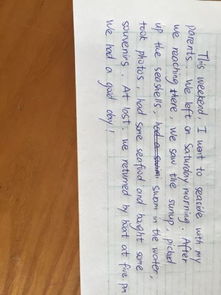 This weekend I want to seaside with my
parents. We left on Saturday morning. After
we reaching there, we saw the sunup, picked
up the seashells, swom in the water,
took photos, had some seafood and bought some
souvenirs. At last, we returned by boat at five pm
We had a good day!